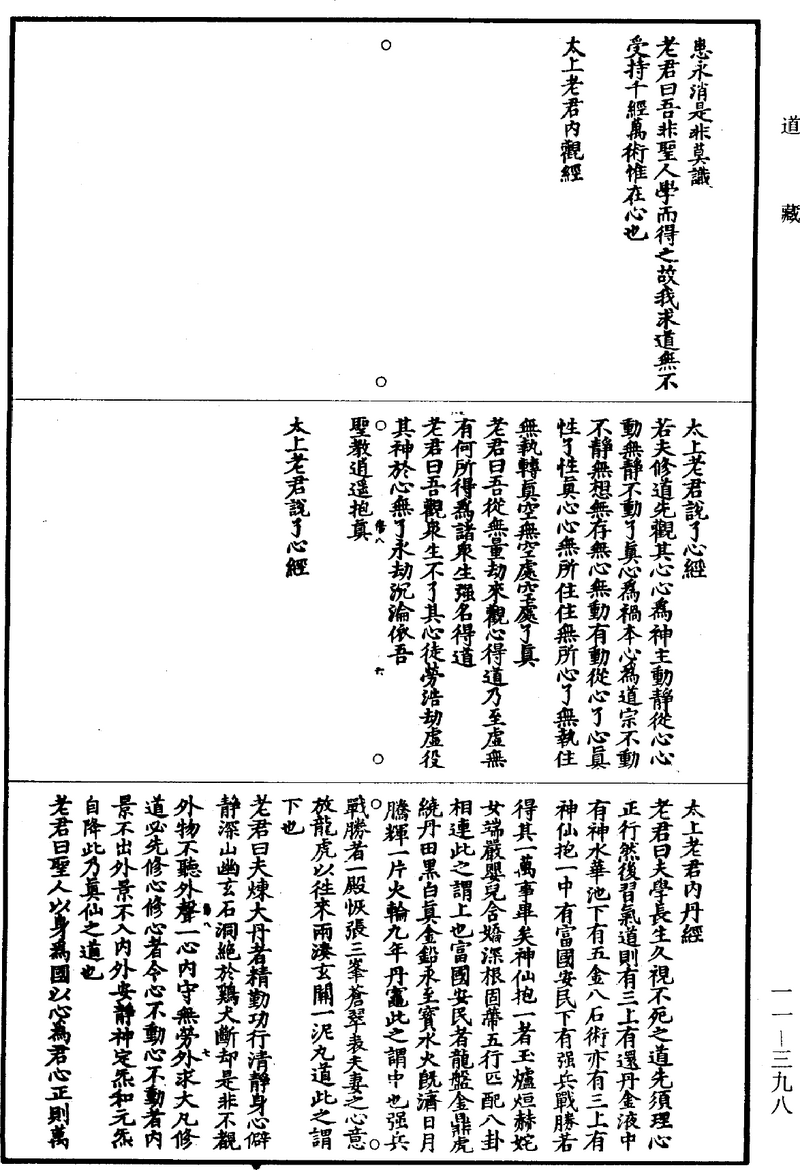 道藏
患永消是非莫識
老君曰吾非聖人學而得之故我求道無不
受持千經萬術惟在心也
太上老君內觀經
太上老君說了心經
若夫修道先觀其心心為神主動靜從心心
動無靜不動了真心為禍本心為道宗不動
不靜無想無存無心無動有動從心了心真
性了性真心心無所住住無所心了無執住
無執轉真空無空處空處了真
老君曰吾從無量劫來觀心得道乃至虛無
有何所得為諸眾生強名得道
老君曰吾觀眾生不了其心徒勞浩劫虛役
其神於心無了永劫沉淪依吾
聖教逍遥抱真
太上老君說了心經
太上老君內丹經
老君曰夫學長生久視不死之道先須理心
正行然後習氣道則有三上有還丹金液中
有神水華池下有五金八石術亦有三上有
神仙抱一中有富國安民下有强兵戰勝若
得其一萬事畢矣神仙抱一者玉爐烜赫姹
女端嚴嬰兒含嬌深根固蔕五行匹配八卦
相連此之謂上也富國安民者龍盤金鼎虎
繞丹田黑白真金鉛汞至寶水火既濟日月
騰輝一片火輪九年丹竈此之謂中也强兵
戰勝者一殿恢張三峯蒼翠表夫妻之心意
放龍虎以往來雨湊玄關一泥丸道此之謂
下也
老君曰夫煉大丹者精勤功行清靜身心僻
靜深山幽玄石洞絕於鷄犬斷却是非不觀
外物不聽外聲一心內守無勞外求大凡修
道必先修心修心者令心不動心不動者內
景不出外景不入內外安靜神定炁和元炁
自降此乃真仙之道也
老君曰聖人以身為國以心為君心正則萬
一一—三九八